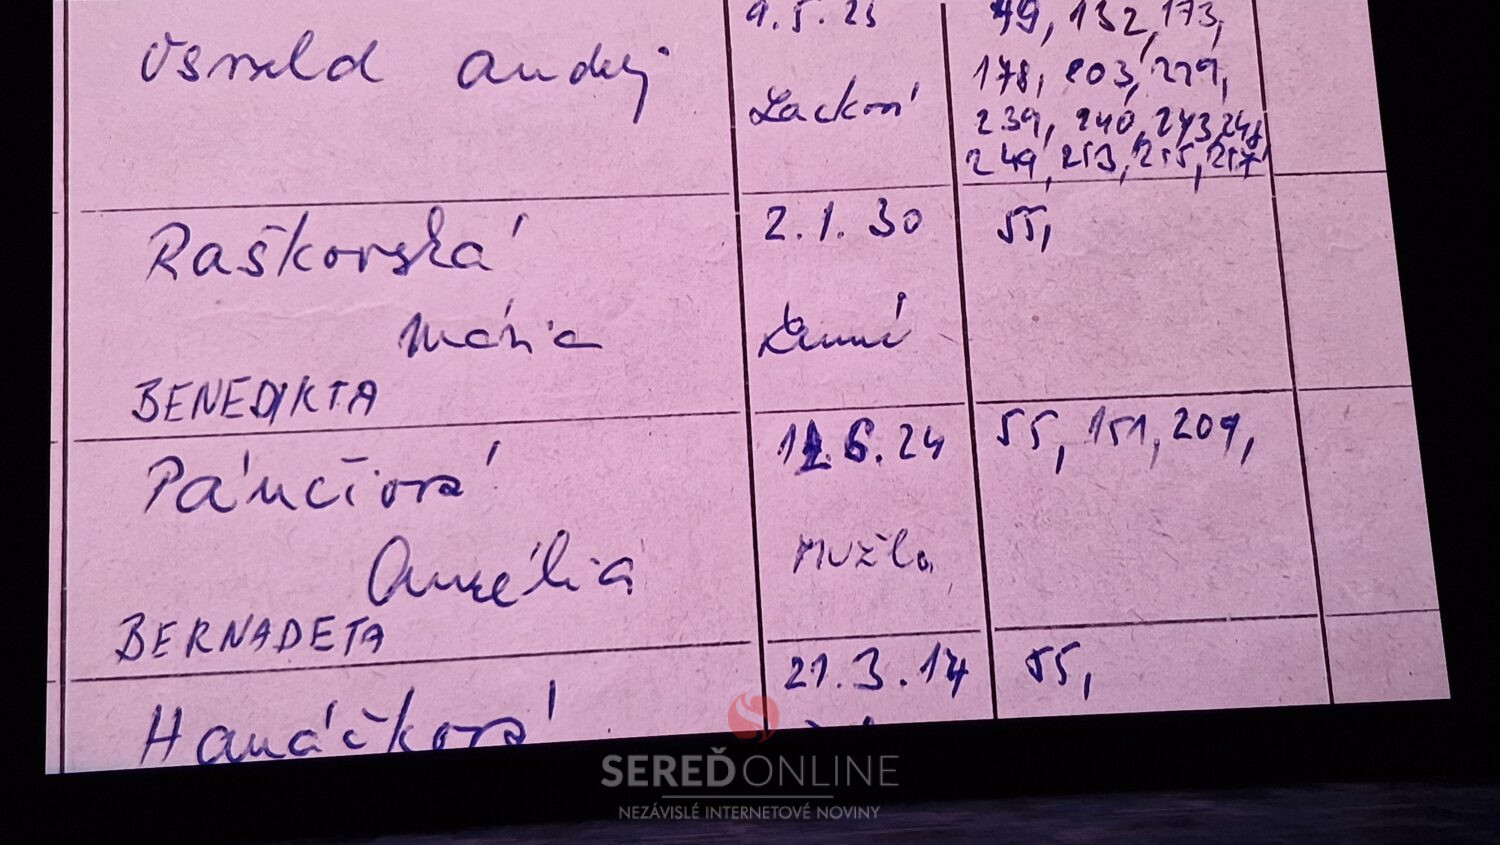 9.5.23 49, 132, 173,
Osvald Andrej 178, 203, 229,
Lackov 239, 240, 243, 248
249, 253, 255, 257
Raškovská 2.1.30 55,
Mária
BENEDIKTA
Pánčiová 12.6.24 55, 151, 209,
Aurélia Mužla
BERNADETA
Hanáčková 21.3.14 55,
SEREĎONLINE
NEZÁVISLÉ INTERNETOVÉ NOVINY